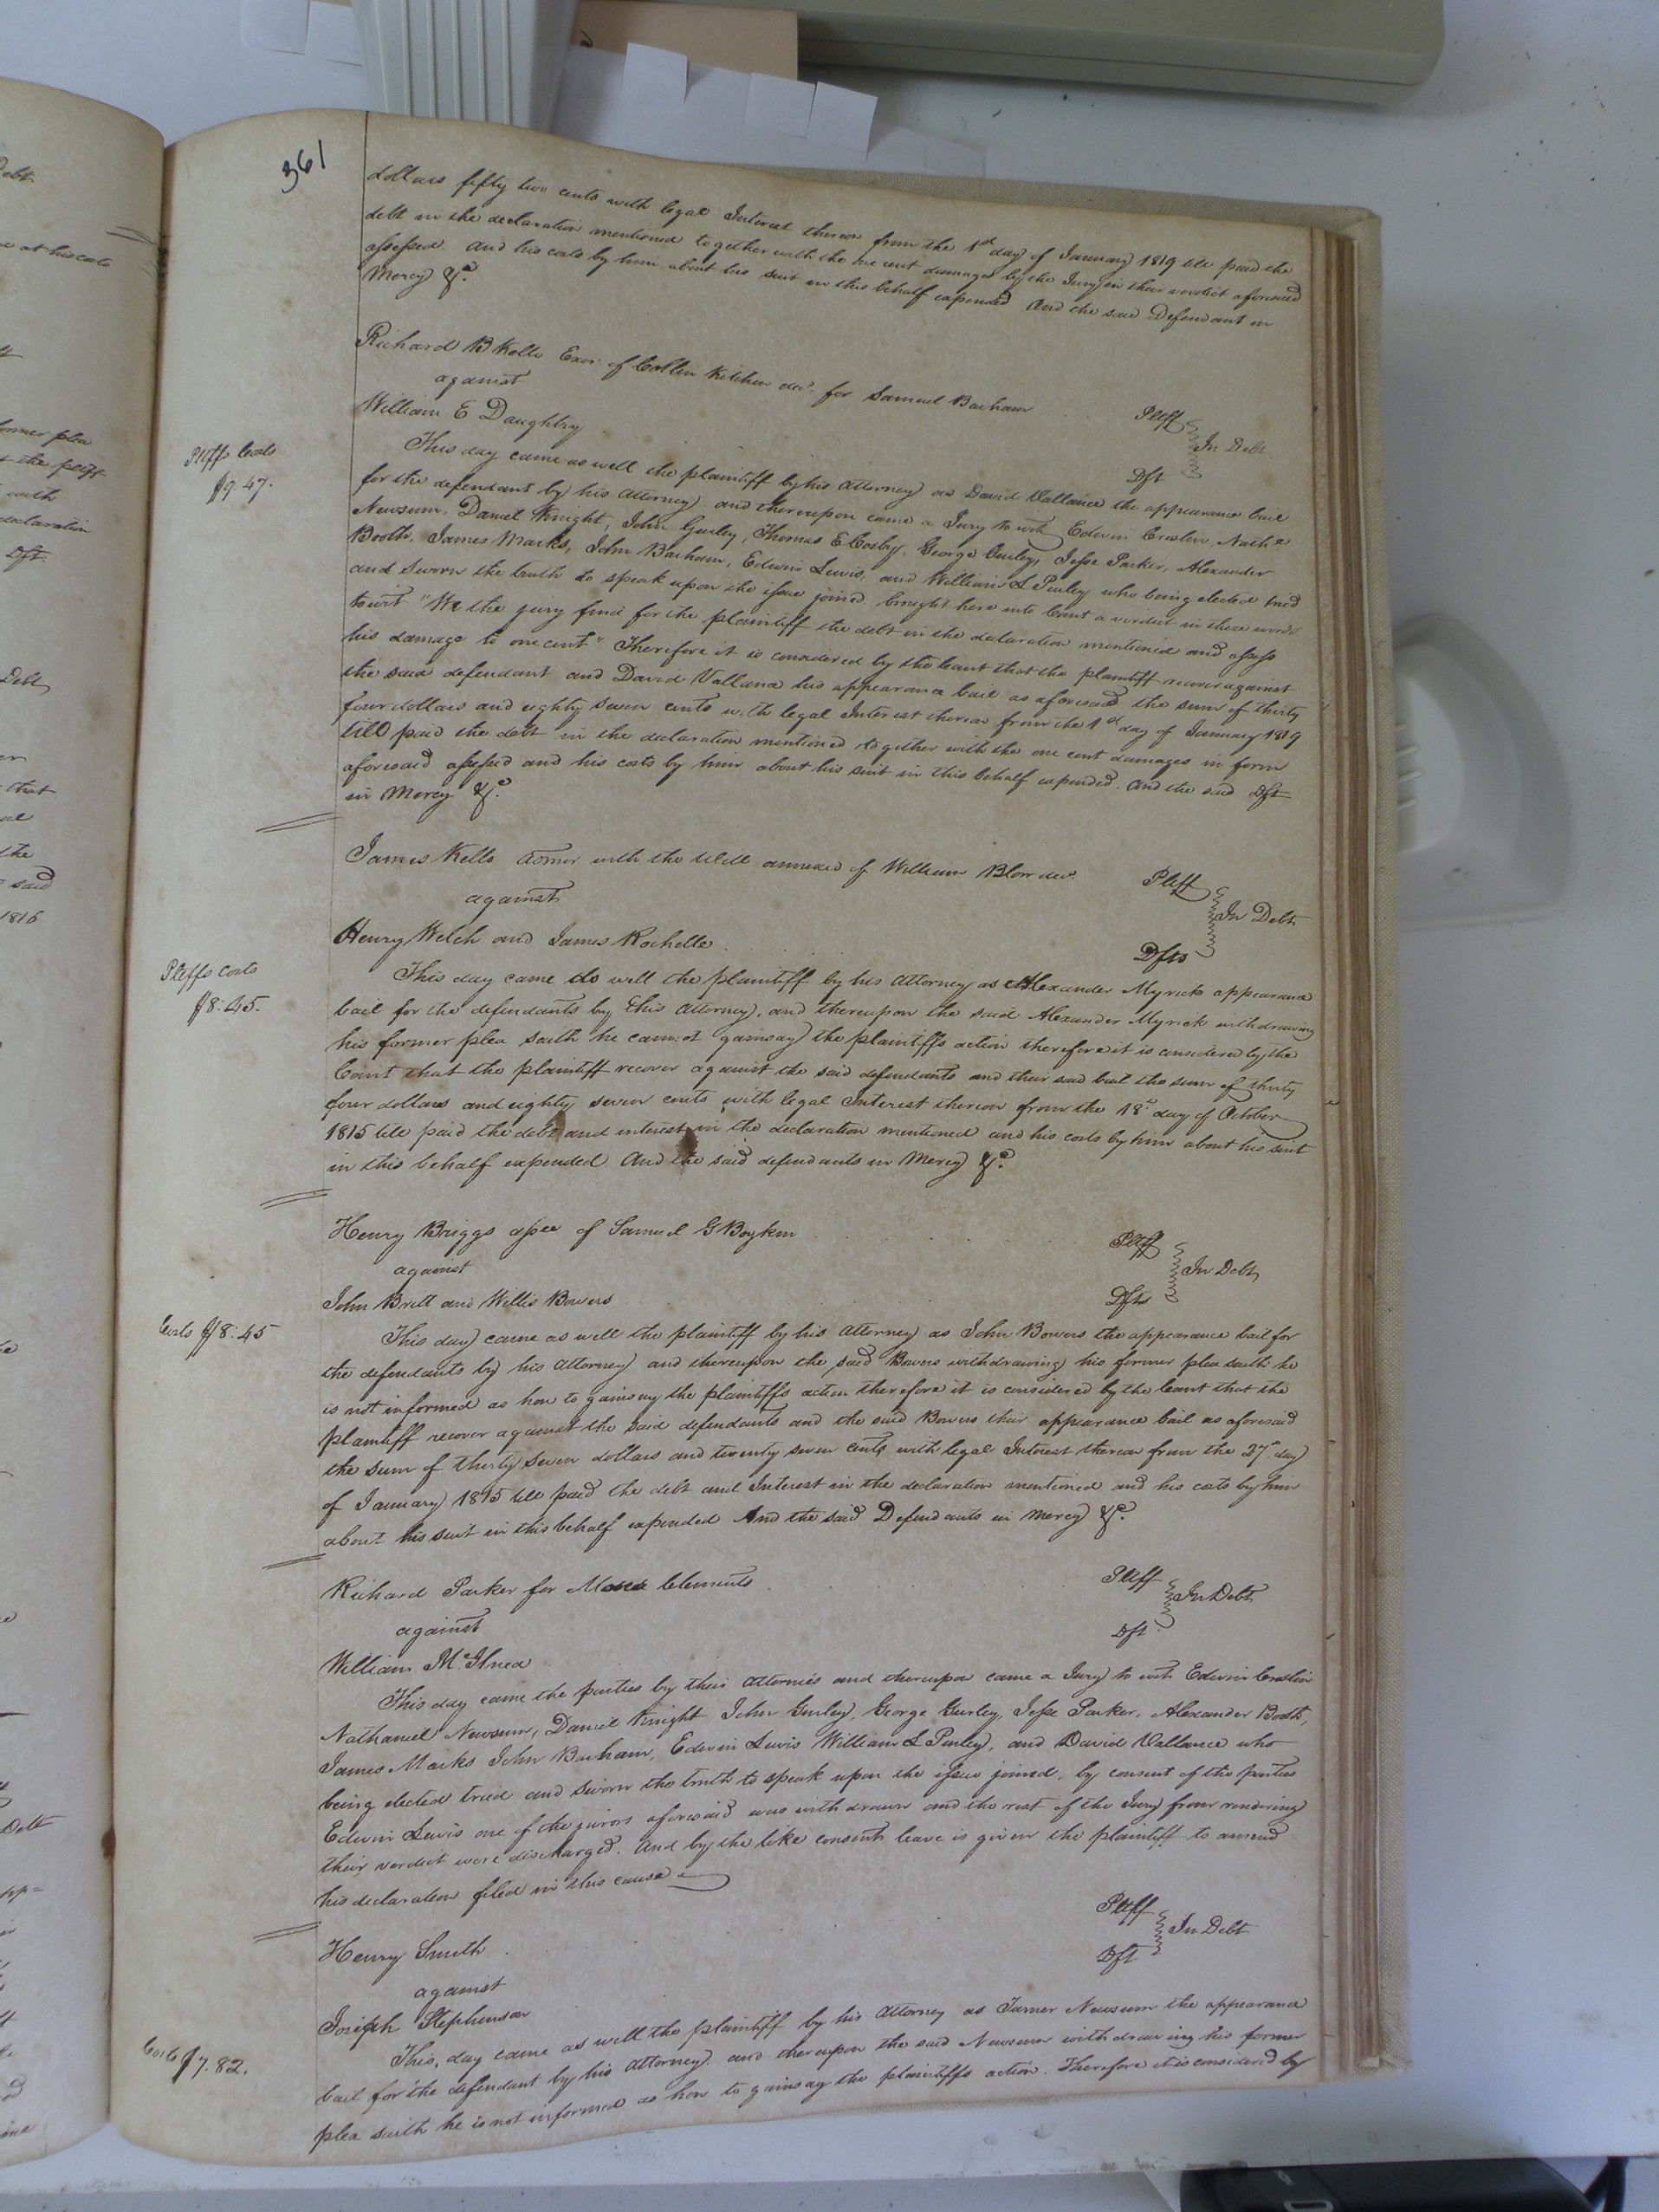 361
dollars fifty two cents with legal Interest thereon from the 1st day of January 1819 till paid the
debt in the declaration mentioned together with the one cent damages by the Jury in their verdict aforesaid
assessed. and his costs by him about his suit in this behalf expended And the said Defendant in
Mercy &c.
Richard B Kello Exor. of Collin Kitchen decd. for Samuel Barham Pltff
against In Debt
William E Daughtry Dft
Pltffs Costs
$9.47.
This day came as well the plaintiff by his Attorney as David Vallance the appearance bail
for the defendant by his Attorney and thereupon came a Jury to wit Edwin Nathl
Newsum, Daniel Knight, John Gurley, Thomas E Cosby, George Gurley, Jesse Parker, Alexander
Booth, James Marks, John Barham, Edwin Lewis, and William L Purley who being elected tried
and sworn the truth to speak upon the issue joined brought here into Court a verdict in these words
towit "We the jury find for the plaintiff the debt in the declaration mentioned and assess
his damage to one cent" Therefore it is considered by the Court that the plaintiff recover against
the said defendant and David Vallance his appearance bail as aforesaid the sum of thirty
four dollars and eighty seven cents with legal Interest thereon from the 1st day of January 1819
till paid the debt in the declaration mentioned together with the one cent damages in form
aforesaid assessed and his costs by him about his suit in this behalf expended. And the said Dft
in Mercy &c.
James Kello Admor with the Will annexed of William Blow decd. Pltff
against In Debt
Henry Welch and James Rochelle Dfts
Pltffs costs
$8.45.
This day came as well the plaintiff by his Attorney as Alexander Myrick appearance
bail for the defendants by his Attorney, and thereupon the said Alexander Myrick withdrawing
his former plea saith he cannot gainsay the plaintiffs action therefore it is considered by the
Court that the plaintiff recover against the said defendants and their said bail the sum of thirty
four dollars and eighty seven cents with legal Interest thereon from the 18th day of October
1815 till paid the debt and interest in the declaration mentioned and his costs by him about his suit
in this behalf expended And the said defendants in Mercy &c.
Henry Briggs assee of Samuel G Boykin Pltff
against In Debt
John Britt and Willis Bowers Dfts
Costs $8.45
This day came as well the plaintiff by his Attorney as John Bowers the appearance bail for
the defendants by his Attorney and thereupon the said Bowers withdrawing his former plea saith he
is not informed as how to gainsay the plaintiffs action therefore it is considered by the Court that the
plaintiff recover against the said defendants and the said Bowers their appearance bail as aforesaid
the sum of thirty seven dollars and twenty seven cents with legal Interest thereon from the 27th day
of January 1815 till paid the debt and Interest in the declaration mentioned and his costs by him
about his suit in this behalf expended And the said Defendants in Mercy &c.
Richard Parker for Moses Clements Pltff
against In Debt
William Dft
This day came the parties by their Attornies and thereupon came a Jury to wit Edwin
Nathaniel Newsum, Daniel Knight John Gurley, George Gurley, Jesse Parker, Alexander Booth,
James Marks John Barham, Edwin Lewis William L Purley, and David Vallance who
being elected tried and sworn the truth to speak upon the issue joined, by consent of the parties
Edwin Lewis one of the jurors aforesaid was withdrawn and the rest of the Jury from rendering
their verdict were discharged. And by the like consent leave is given the plaintiff to amend
his declaration filed in this cause
Henry Smith Pltff
against In Debt
Joseph Stephenson Dft
Costs $7.82.
This day came as well the plaintiff by his Attorney as Turner Newsum the appearance
bail for the defendant by his Attorney and thereupon the said Newsum withdrawing his former
plea saith he is not informed as how to gainsay the plaintiffs action. Therefore it is considered by